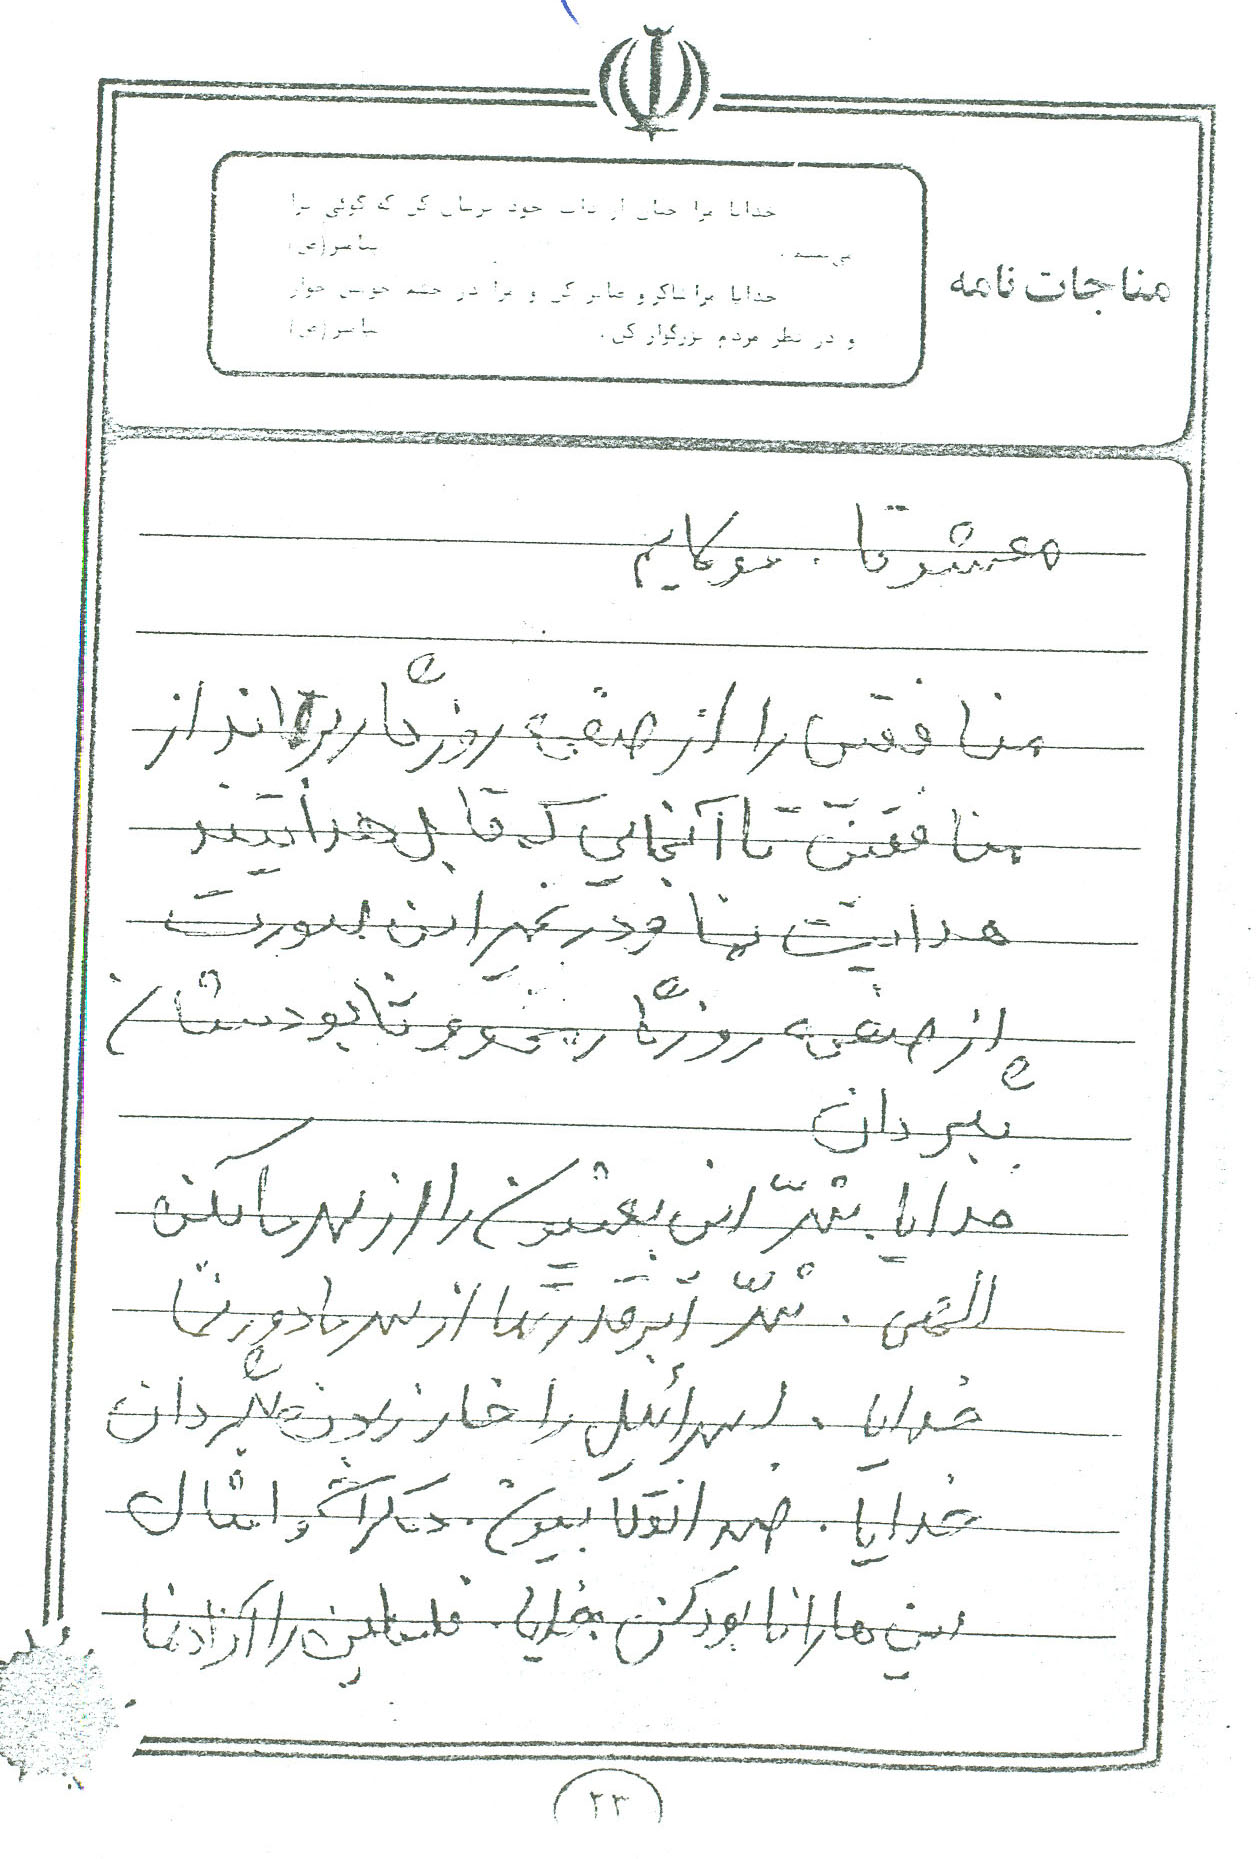 مناجات نامه
خدایا مرا چنان از ذات خود ترسان کن که گوئی ترا
می‌بینم . پیامبر(ص)
خدایا مرا شاکر و صابر کن و مرا در چشم خویش خوار
و در نظر مردم بزرگوار کن . پیامبر(ص)
معشوقا . مولایم
منافقین را از صفحه روزگار برانداز
منافقین تا آنجایی که قابل هدایتند
هدایت بنما و در غیر این صورت
از صفحه روزگار محو و نابودشان
بگردان
خدایا شرّ این بعثیون را از سر ما بکن
الهی . شرّ ابرقدرتها از سر ما دور نما
خدایا . اسرائیل را خار و زبون بگردان
خدایا . ضد انقلابیون . دمکرات و امثال
این ها را نابود کن خدایا . فلسطین را آزاد نما
۲۳